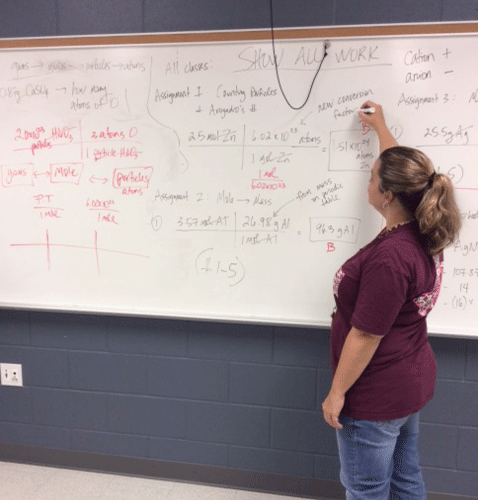 grams → moles → particles → atoms
→ how many
atoms of O
3 atoms O
particles
1 particle
grams ↔ Mole ↔ particles
atoms
PT
1 mol
1 mol
All classes:
SHOW ALL WORK
Assignment 1 Counting Particles
+ Avogadro's #
new conversion
factor
2.5 mol Zn
6.02 × 10²³ atoms
1 mol Zn
=
atoms
Zn
B
1 mol
Assignment 2: Mole → Mass
from mass
in periodic
table
① 3.57 mol Al
26.98 g Al
1 mol Al
= 96.3 g Al
B
(# 1-5)
Cation +
anion -
Assignment 3:
①
25.5 g Ag
5)
AgN
107.87
14